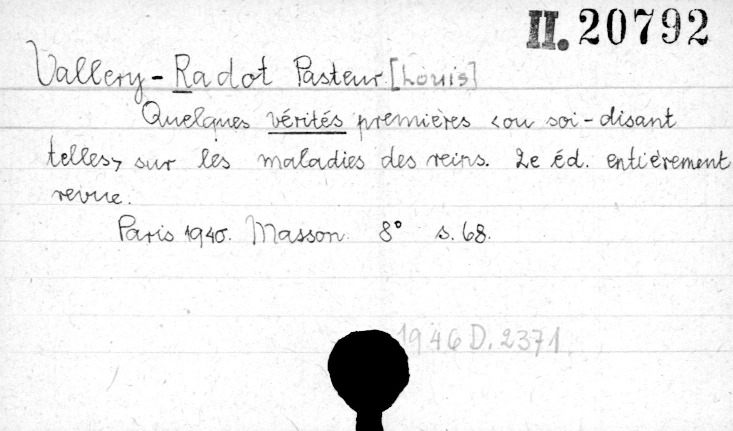 II. 20792
Vallery-Radot Pasteur [Louis]
Quelques vérités premières <ou soi-disant
telles> sur les maladies des reins. 2e éd. entièrement
revue.
Paris 1940. Masson. 8° s. 68.
1946 D. 2371.